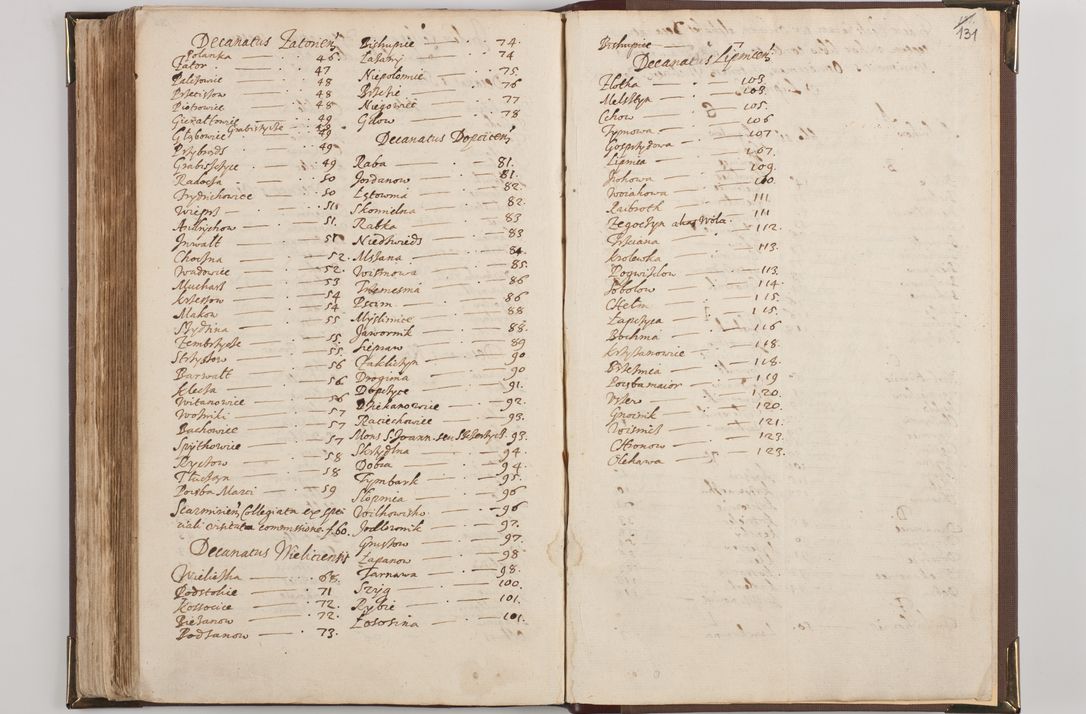 Decanatus Zatorien
Polanka 46.
Zator 47
Palczowic 48
Przeciszow 48
Piotrowice 48
Gierałtowic 49
Głębowic Grabiszycze 49
Przybrads 49
Grabiszczyce 49
Radocza 50
Frydrichowic 50
Wieprz 51
Andrychow 51.
Inwałt 51
Choczna 52
Wadowic 52.
Muchars 53
Krzeszow 54
Makow 54
Slydzina 55
Zembrzycze 55
Stryszow 55.
Barwałt 56
Klecza 56
Witanowic 56
Wozniki 57
Bachowic 57
Spytkowic 57
Ryczow 58
Tłuczen 58
Poręba Marci 59
Scarmirien Collegiata ex spe-
ciali visitata commissione. f. 60.
Decanatus Wieliciensis
Wieliczka 68.
Podstolic 71
Kossocice 72.
Bieżanow 72.
Podłanow 73.
Biskupic 74.
Łazany 74
Niepołomic 75.
Brzezie 76
Niegowic 77
Gdow 78
Decanatus Dopcicen
Raba 81.
Jordanow 81.
Łętownia 82.
Skomielna 82.
Rabka 83
Niedzwieds 83
Mszana 84.
Wismowa 85.
Trzemesnia 86
Pcim 86
Myślimice 88
Jawornik 88.
Siepraw 89
Zakliczyn 90
Drogina 90
Dopczyce 91.
Dziekanowice 92.
Raciechowic 93.
Mons S. Joann. seu Skrzydlna 93.
Skrzydlna 94
Dobra 94.
Tymbark 95.
Słopnia 96
Wilkowisko 96
Jodłownik 97.
Gruszow 97.
Łapanow 98
Tarnawa 98.
Szyg 100.
Rybie 101.
Łososina 101.
131
Biskupic
Decanatus Lipnicen
Złotka 103
Melsztyn 103.
Czchow 105.
Tymowa 106
Gosprzydowa 107
Lipnica 107.
Rokowa 109.
Woiakowa 110.
Raibrotk 111
Żegoczyn alias Wola 111
Trzciana 112.
Krolowka 113.
Pogwizdow 113.
Sobolow 114.
Chełm 115.
Łapczyca 115.
Bochnia 116
Krzyżanowic 118.
Brzeznia 118.
Poręba maior 119
Uszew 120.
Gnoinik 120.
Wisnicz 121.
Chronow 123.
Olchawa 123.